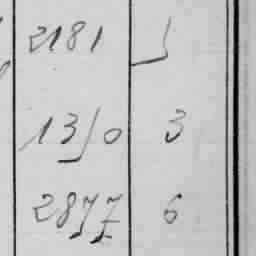 2181 5
1350 3
2877 6